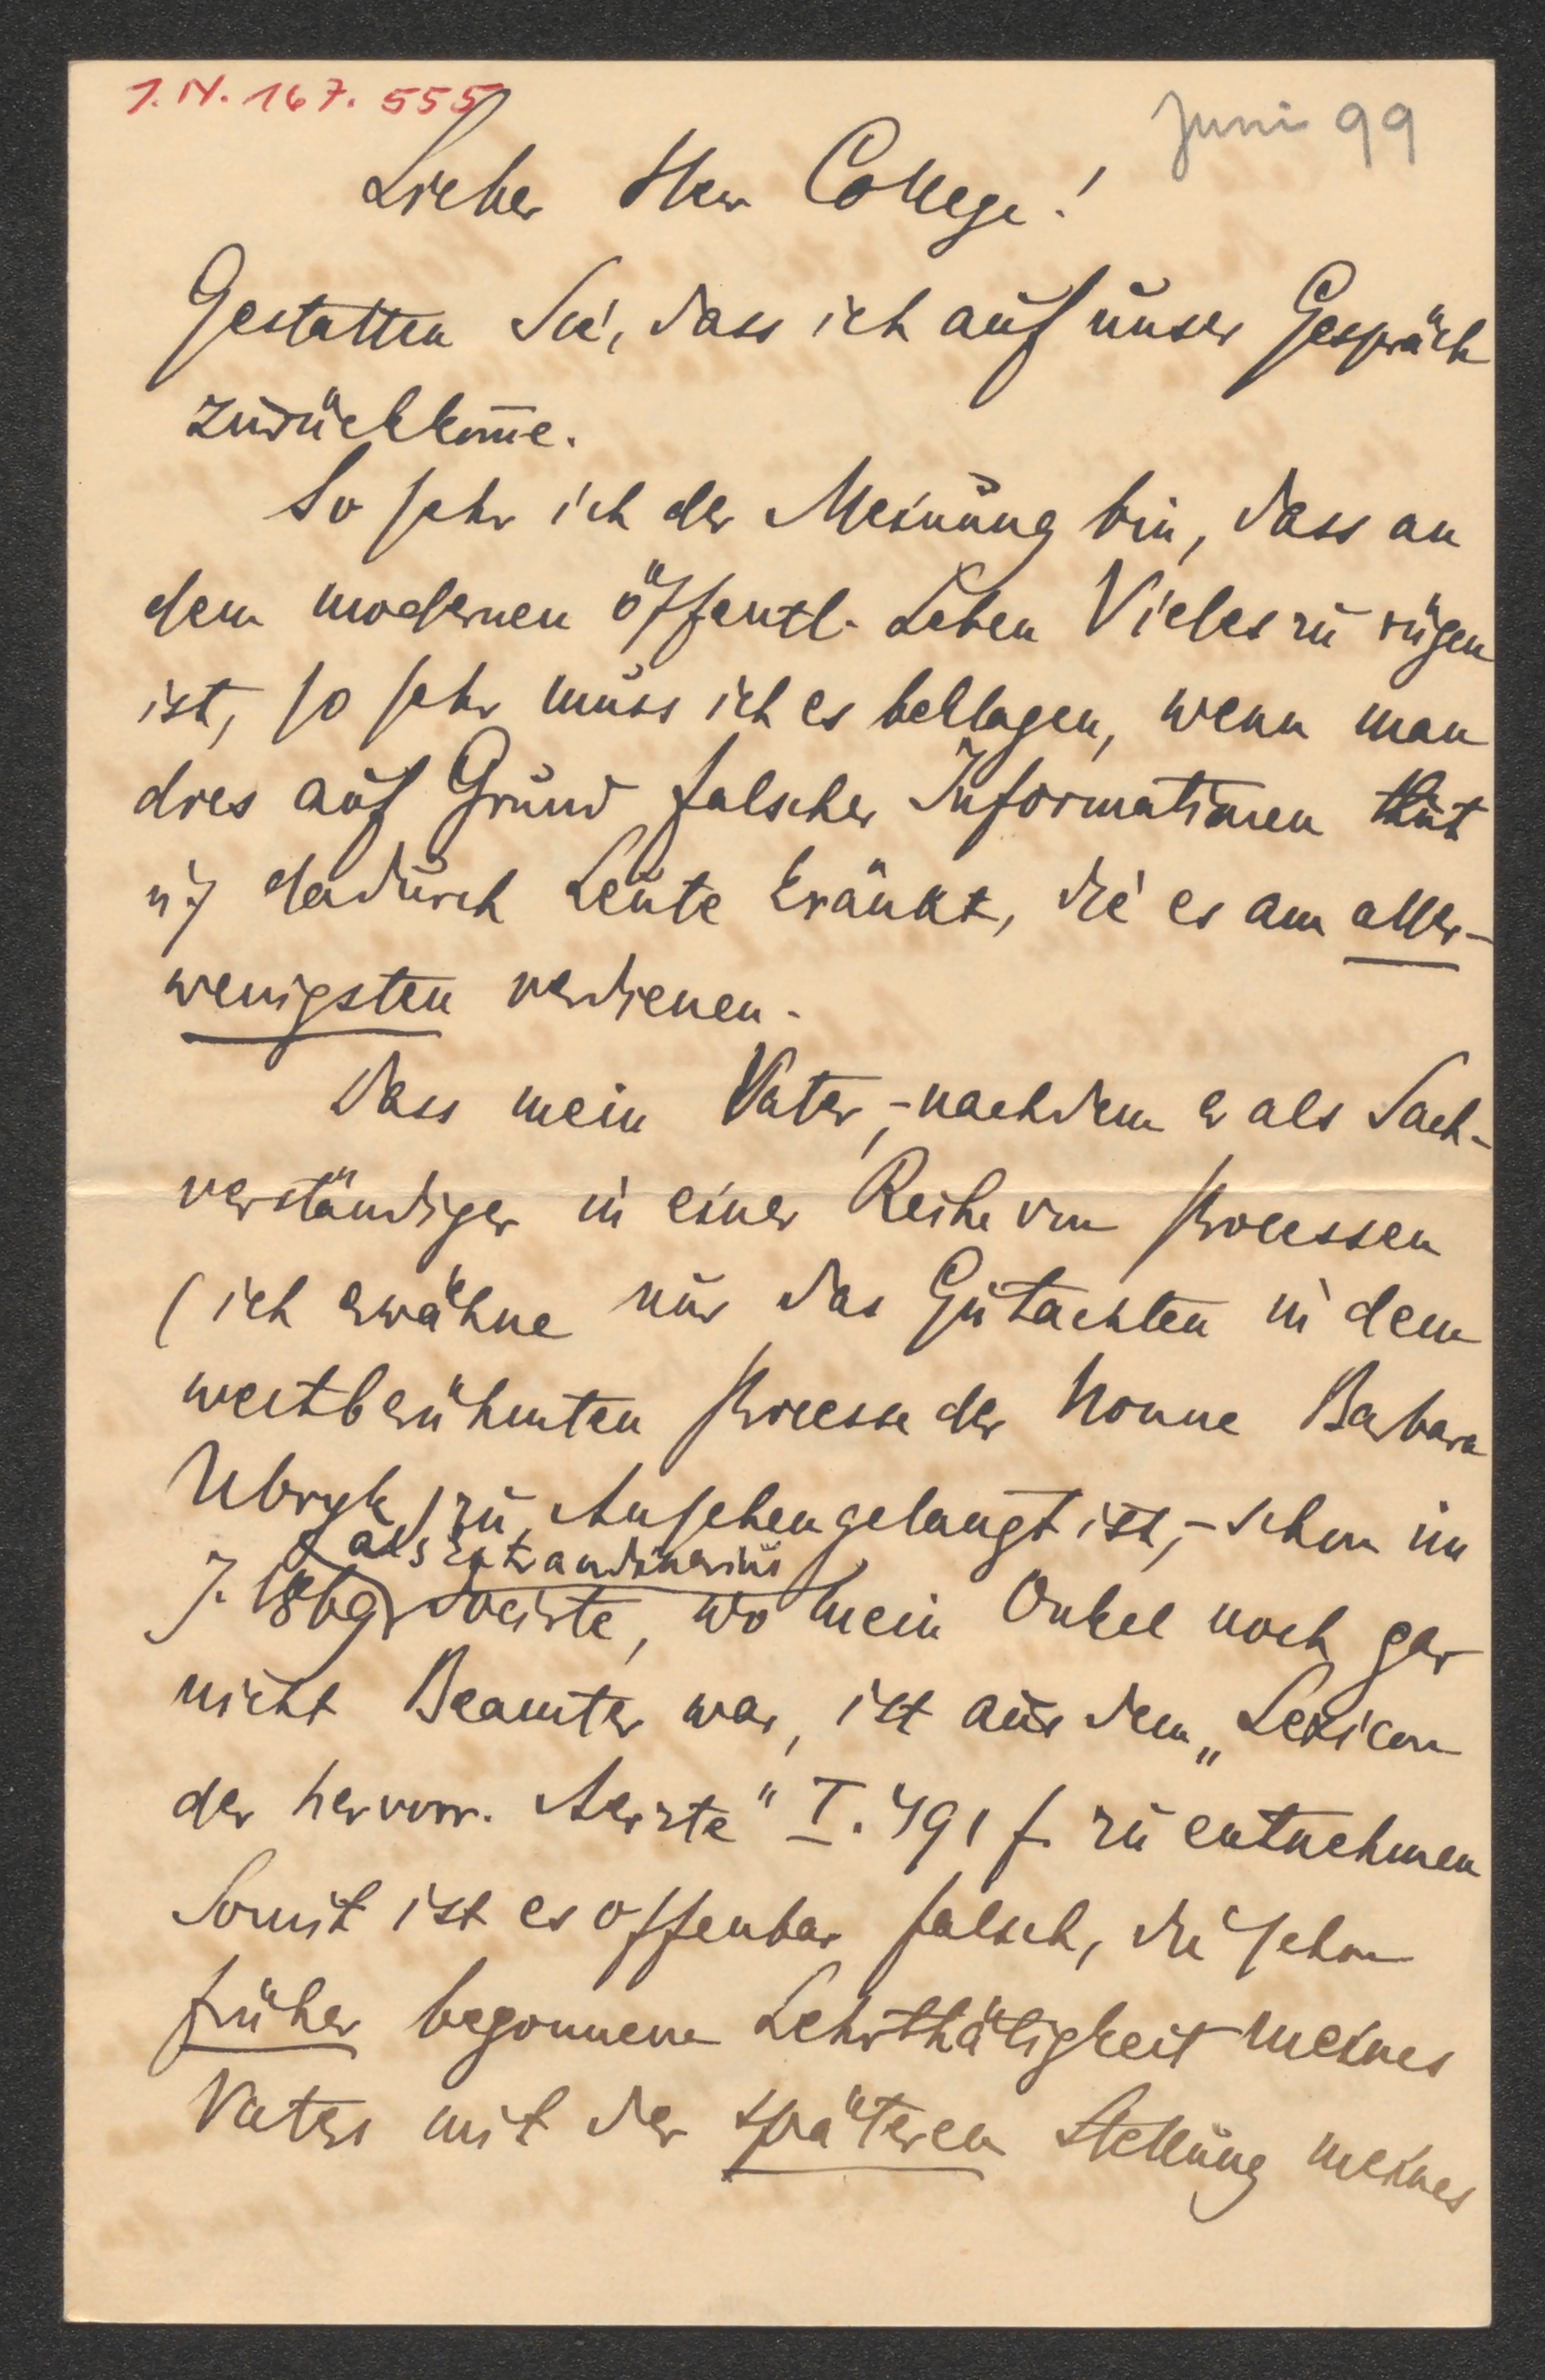 I. N. 167. 555
Juni 99
Lieber Herr College!
Gestatten Sie, dass ich auf unser Gespräch
zurückkom̅e.
So sehr ich der Meinung bin, dass an
dem modernen öffentl. Leben Vieles zu rügen
ist, so sehr muss ich es beklagen, wenn man
dies auf Grund falscher Informationen thut
u. dadurch Leute kränkt, die es am aller-
wenigsten verdienen.
Dass mein Vater, - nachdem er als Sach-
verständiger in einer Reihe von Processen
(ich erwähne nur das Gutachten in dem
weitberühmten Processe der Nonne Barbara
Ubryk) zu Ansehen gelangt ist, - schon im
als Extraordinarius
J. 1869 docirte, wo mein Onkel noch gar
nicht Beamter war, ist aus dem „Lexicon
der hervorr. Aerzte" I. 491 f. zu entnehmen
Somit ist es offenbar falsch, die schon
früher begonnene Lehrthätigkeit meines
Vaters mit der späteren Stellung meines